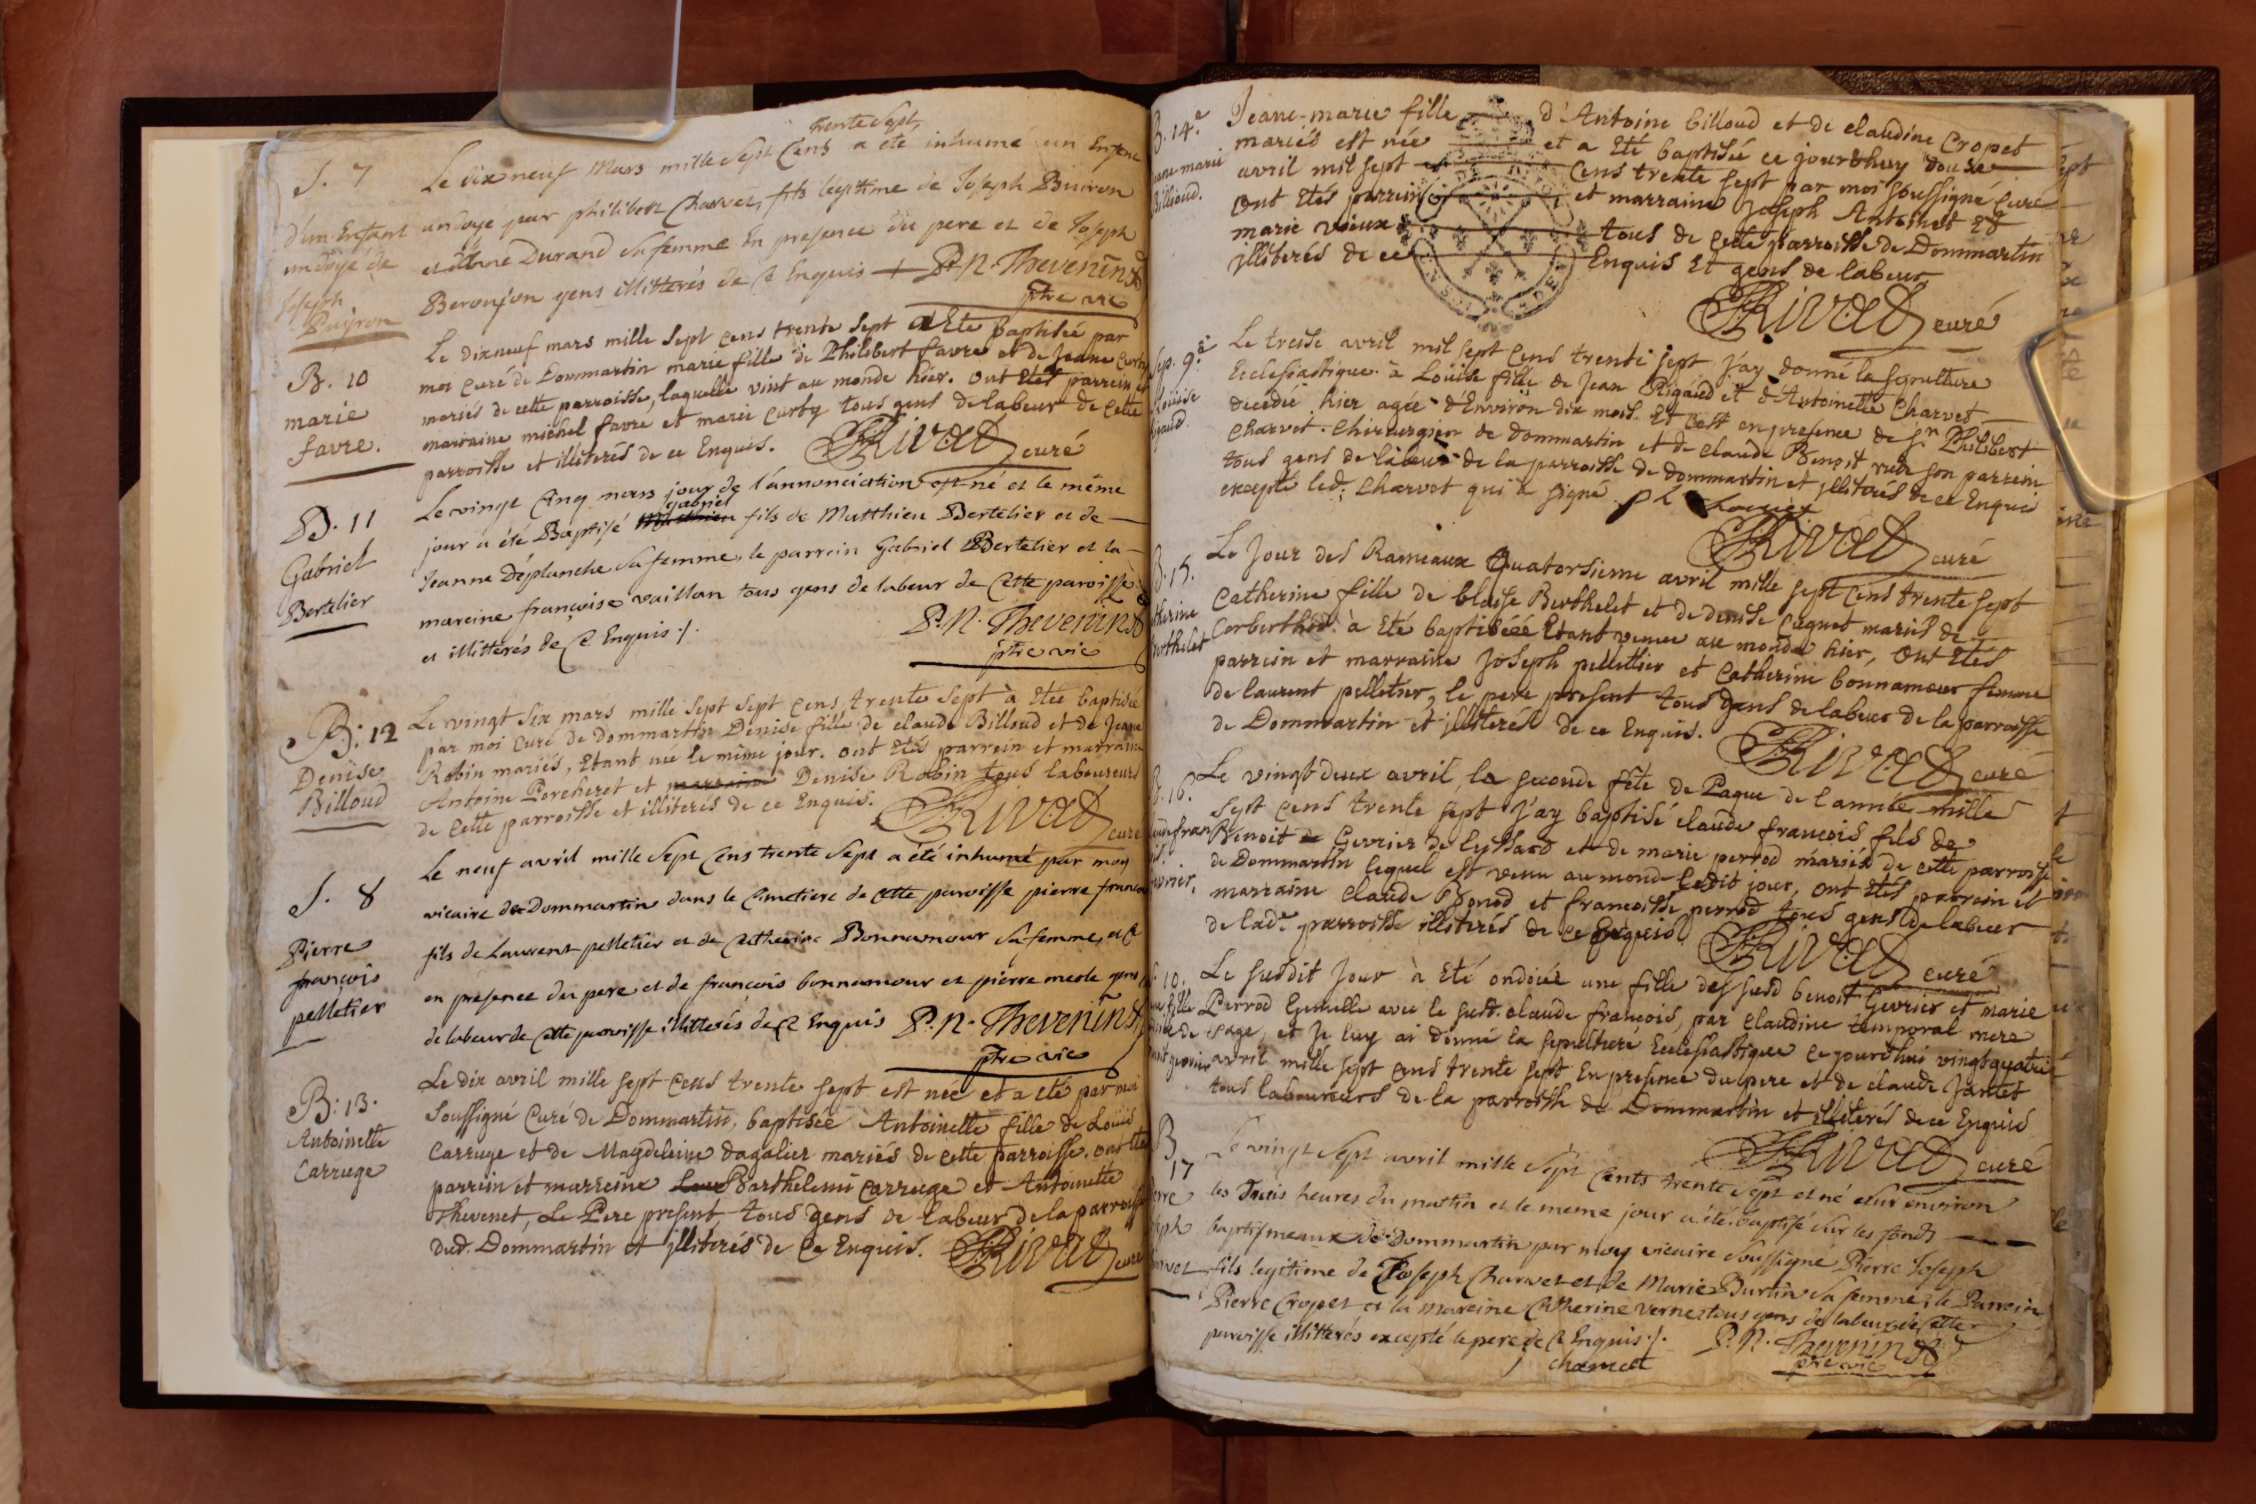 S. 7
d'un Enfant
ondoyé de
Joseph
Buiron
trente sept
Le dix neuf Mars mille sept Cens a été inhumé un Enfent
ondoye par philibert Charvet, fils légitime de Joseph Buiron
et Durand sa femme En presence du pere et de Joseph
Beronjon gens illitterés de ce Enquis P. N. Thevenin
ptre vic
B. 10
marie
favre.
Le dixneuf mars mille sept cens trente sept a Eté baptisée par
moi curé de Dommartin marie fille de Philibert favre et de Jeane
mariés de cette parroisse, laquelle vint au monde hier. ont Etés parrein et
marraine michel favre et marie curby tous gens de labeur de cette
parroisse et illiterés de ce Enquis. Rivat curé
B. 11
Gabriel
Bertelier
Le vingt Cinq mars jour de l'annonciation est né et le même
gabriel
jour a été Baptisé fils de Matthieu Bertelier et de
Jeanne Déplanche sa femme, le parrein Gabriel Bertelier et la
mareine françoise vaillan tous gens de labeur de Cette paroisse
et illitterés de Ce Enquis ./. P. N. Thevenin
ptre vic
B: 12
Denise
Billoud
Le vingt six mars mille sept sept cens, trente sept à Etée baptisée
par moi curé de Dommartin Denise fille de claude Billoud et de Jeane
Robin mariés, Etant née le même jour. ont Etés parrein et marraine
Antoine Percheret et marraine Denise Robin tous laboureurs
de Cette parroisse et illiterés de ce Enquis. Rivat curé
S. 8
Pierre
françois
pelletier
Le neuf avril mille sept Cens trente sept a été inhumé par moy
vicaire de Dommartin dans le Cimetiere de Cette paroisse pierre francois
fils de Laurent pelletier et de Catherine Bonnamour sa femme, et Ce
en presence du pere et de françois bonnamour et pierre mesle gens
de labeur de Cette paroisse illitterés de Ce Enquis P. N. Thevenin
ptre vic
B: 13.
Antoinette
Carruge
Le dix avril mille sept Cens trente sept est née et a été par moi
Soussigné Curé de Dommartin, baptisée Antoinette fille de Louïs
Carruge et de Magdeleine dagalier mariés de cette parroisse. ont Etés
parrein et marreine Barthelemi Carruge et Antoinette
Thevenet, Le Pere present, tous gens de labeur de la parroisse
dud. Dommartin et jlliterés de Ce Enquis. Rivat curé
B. 14.e
Jeane marie
Billioud.
Jeane-marie fille d'Antoine billoud et de claudine Cropet
mariés est née et a Eté baptisée ce jourdhuy douse
avril mil sept Cens trente sept par moi soussigné Curé
ont Etés parrein et marraine Joseph Antoinet Et
marie vieux tous de Cette parroisse de Dommartin
jlliterés de ce Enquis Et gens de labeur
Rivat curé
Sep. 9.e
Louïse
Rigaud
Le treise avril mil sept Cens trente sept j'ay donné la sepulture
Ecclesiastique à Louïse fille de Jean Rigaud et d'Antoinette Charvet
decedée hier agée d'Environ dix mois. Et C'est en presence de Sr Philibert
Charvet chirurgien de Dommartin et de claude Benoit rude son parrein
tous gens de labeur de la parroisse de dommartin et jlliterés de ce Enquis
excepté led. Charvet qui a signé. ph Charvet
Rivat curé
B. 15.
Catherine
Berthelet
Le jour des Rameaux Quatorsieme avril mille sept cens trente sept
Catherine fille de blaise Berthelet et de denise Cuguet mariés de
Corberthod à Eté baptiséée Etant venue au monde hier, ont Etés
parrein et marraine Joseph pelletier et Catherine bonnamour femme
de laurent pelletier, le pere present tous gens de labeur de la parroisse
de Dommartin et jlliterés de ce Enquis. Rivat curé
B. 16.
Le vingt deux avril, la seconde fête de Paque de l'année mille
sept cens trente sept j'ay baptisé claude françois fils de
Benoit Gevrier de lyssard et de marie perrod mariés de cette parroisse
de Dommartin lequel est venu au monde Ledit jour, ont Etés parrein et
marraine Claude Bonod et francoisse perrod tous gens de labeur
de lade parroisse illiterés de ce Enquis. Rivat curé
10.
Le susdit Jour à Eté ondoiée une fille des susd benoit Gevrier et marie
Perrod Gemelle avec le susd. claude françois, par Claudine temporal mere
sage, et je luy ai donné la sepulture Ecclesiastique ce jourdhui vingtquatre
avril mille sept cens trente sept En presence du pere et de claude Jantet
tous laboureurs de la parroisse de Dommartin et illiterés de ce Enquis
Rivat curé
B
17
Le vingt sept avril mille sept Cents trente sept est né sur environ
les trois heures du mattin et le meme jour a été baptisé sur les fonds
baptismeaux de Dommartin par moy vicaire soussigné Pierre Joseph
fils legitime de Joseph Charvet et de Marie Burtin sa femme, le Parrein
Pierre Cropet et la mareine Catherine verne tous gens de labeur de Cette
paroisse illitterés excepté le pere de Ce Enquis ./. P. N. Thevenin
j charvet ptre vic